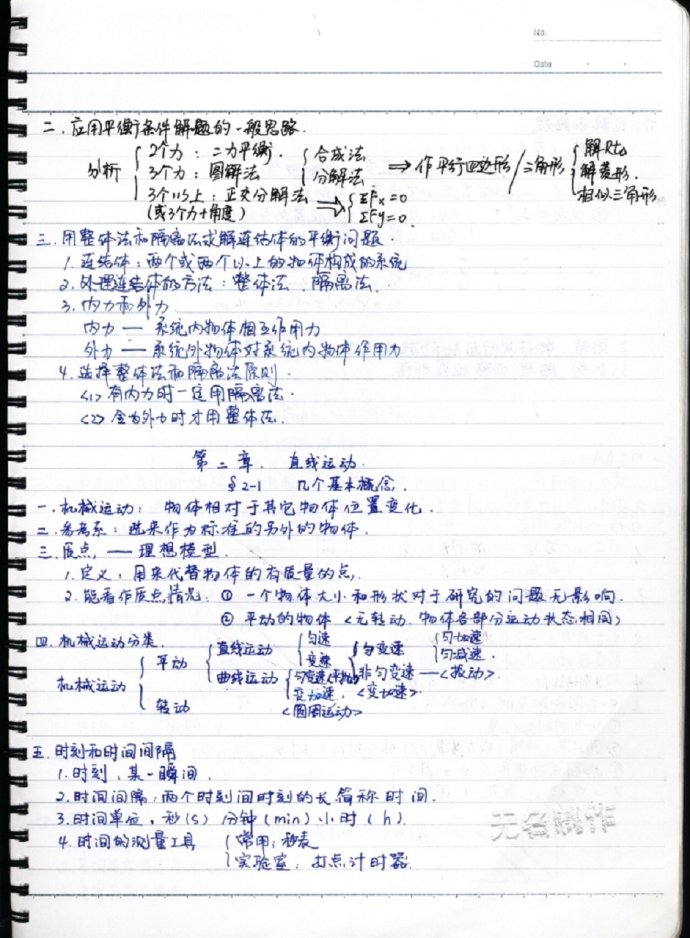 No.
Date
二.应用平衡条件解题的一般思路.
分析 { 2个力：二力平衡. { 合成法 ⇒ 作平行四边形/三角形 { 解Rt△
3个力：图解法 分解法 解菱形.
3个以上：正交分解法 ⇒ { ΣFx=0 相似三角形.
(或3个力+角度) ΣFy=0.
三.用整体法和隔离法求解连结体的平衡问题.
1.连结体：两个或两个以上的物体构成的系统
2.处理连结体的方法：整体法 隔离法.
3.内力和外力
内力 — 系统内物体相互作用力
外力 — 系统外物体对系统内物体作用力
4.选择整体法和隔离法原则.
<1>有内力时一定用隔离法.
<2>全为外力时才用整体法.
第二章. 直线运动.
§2-1 几个基本概念.
一.机械运动：物体相对于其它物体位置变化.
二.参考系：选来作为标准的另外的物体.
三.质点. — 理想模型.
1.定义：用来代替物体的有质量的点,
2.能看作质点情况：① 一个物体大小和形状对于研究的问题无影响.
② 平动的物体 <无转动.物体各部分运动状态相同>
四.机械运动分类.
机械运动 { 平动 { 直线运动 { 匀速
变速 { 匀变速 { 匀加速.
匀减速.
非匀变速 —<振动>.
曲线运动 { 匀变速<平抛>
变加速. <变加速>
<圆周运动>
转动
五.时刻和时间间隔
1.时刻：某一瞬间.
2.时间间隔：两个时刻间时刻的长.简称时间.
3.时间单位：秒(s) 分钟(min) 小时(h).
4.时间的测量工具 { 常用：秒表
实验室：打点计时器.
无名制作